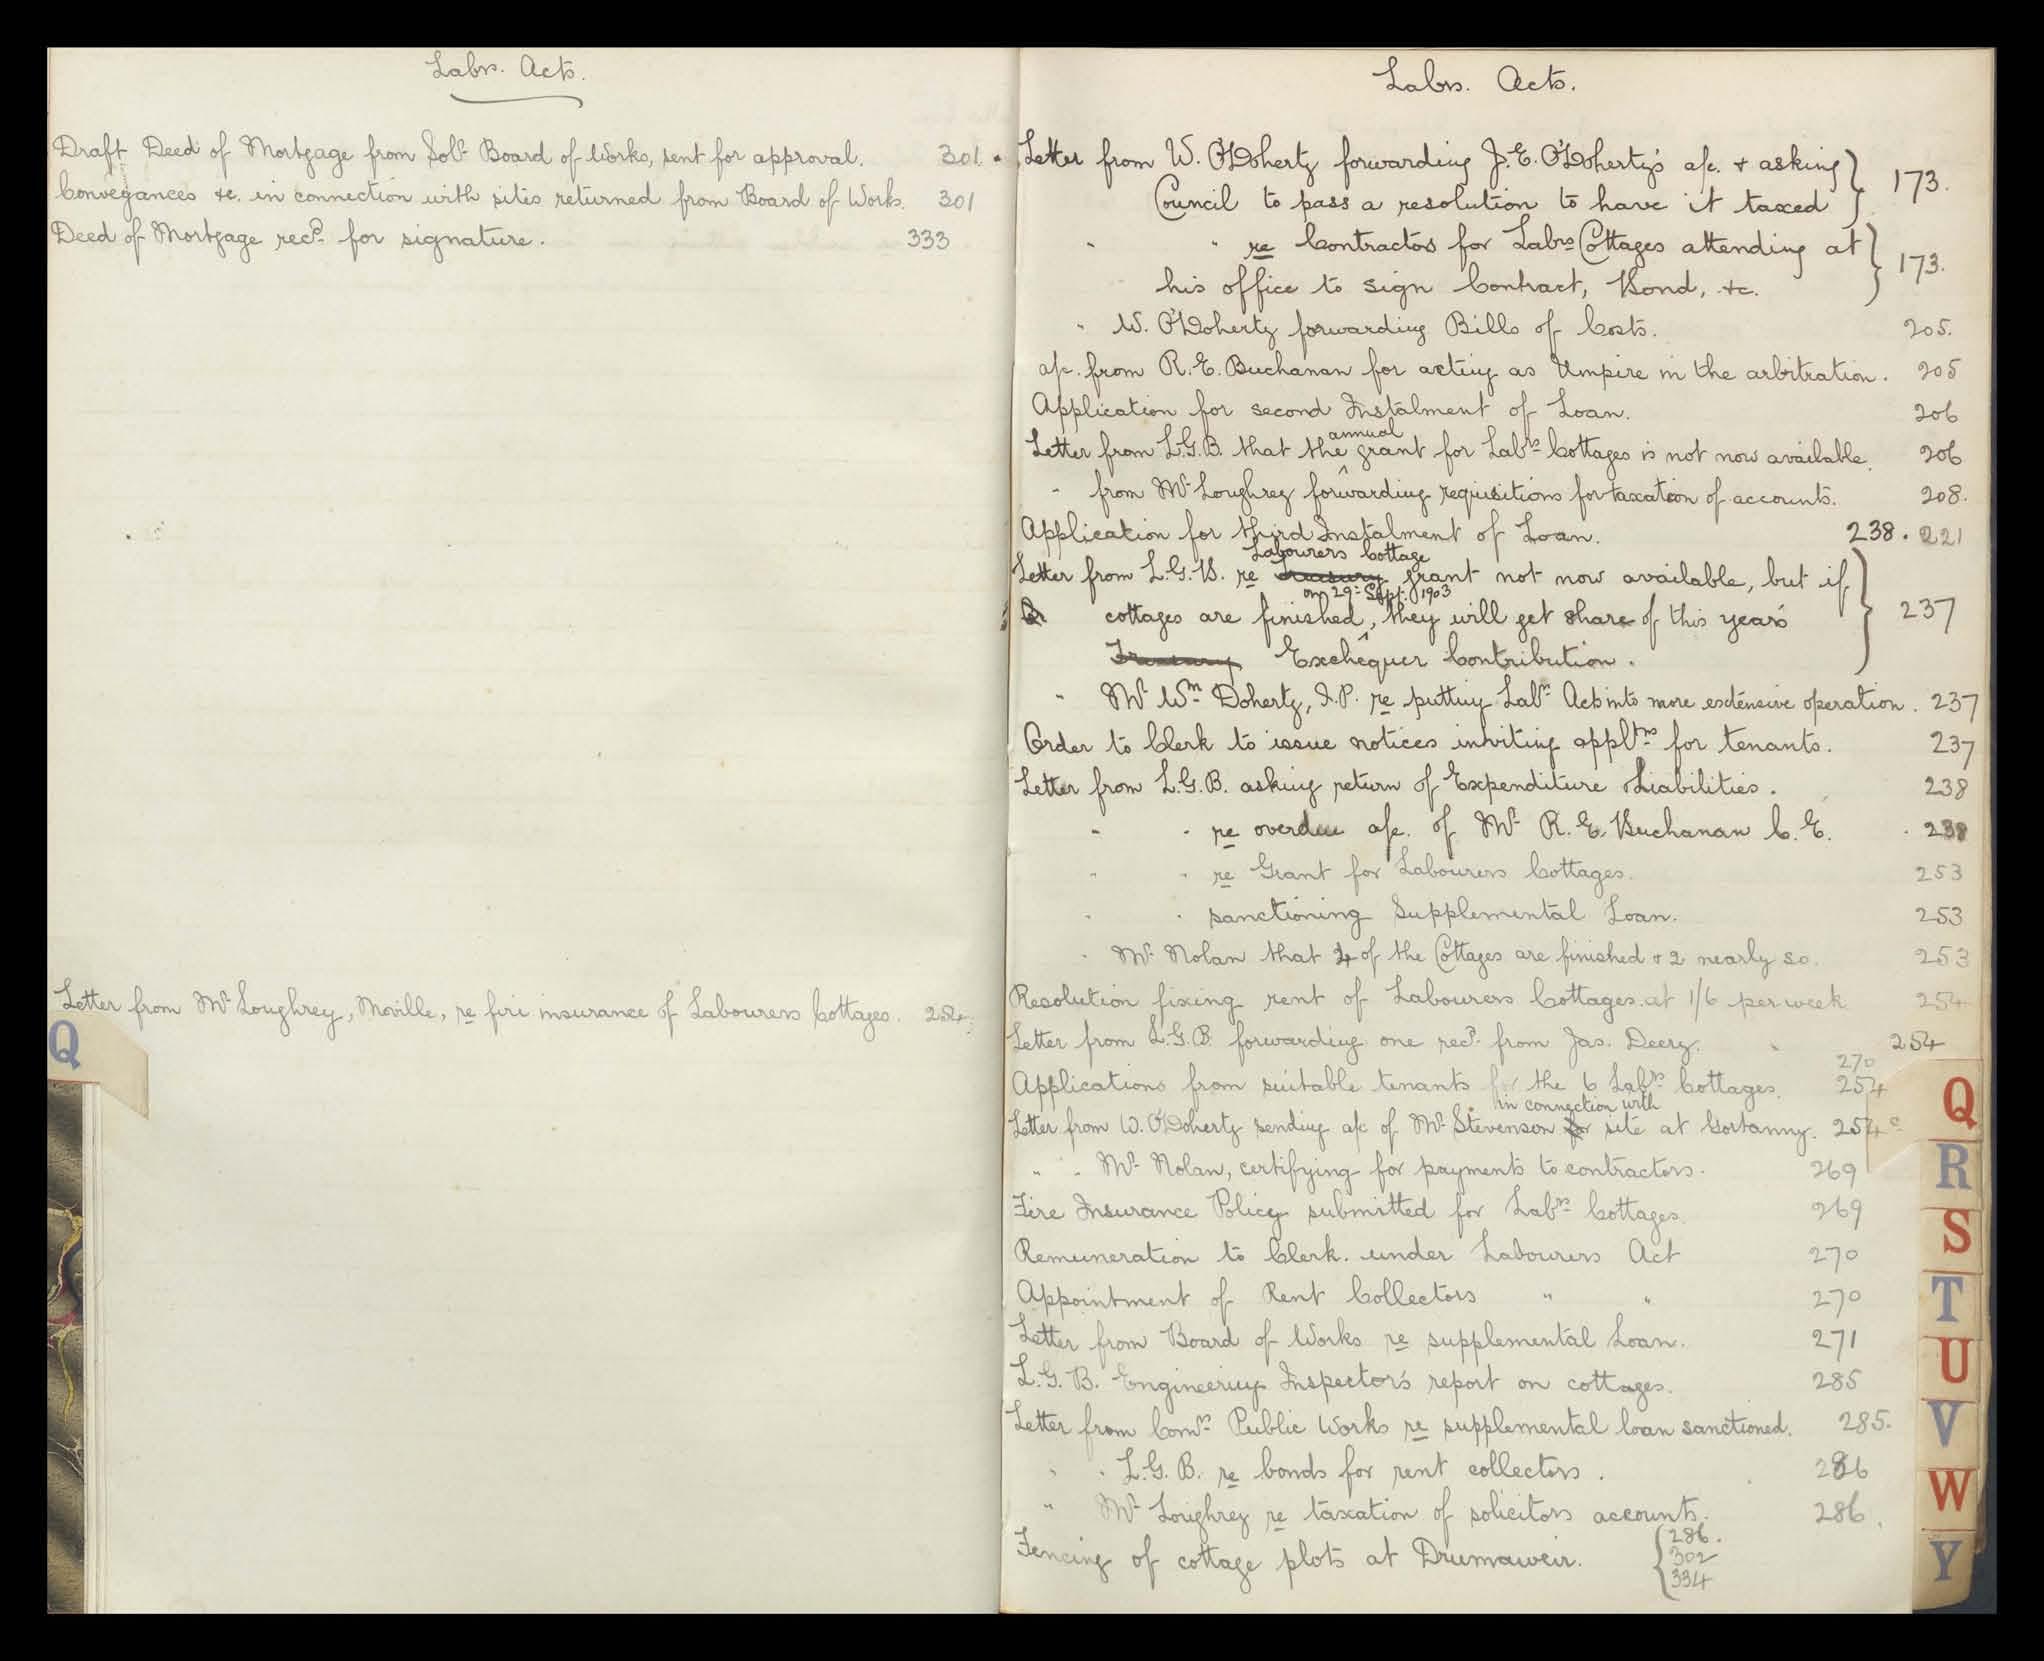 Labrs. Acts.
Draft Deed of Mortgage from Solr. Board of Works, sent for approval. 301.
Conveyances &c. in connection with sites returned from Board of Works. 301
Deed of Mortgage recd. for signature. 333
Letter from Mr. Loughrey, Moville, re fire insurance of Labourers Cottages. 254.
Q
Labrs. Acts.
Letter from W. O'Doherty forwarding J. E. O'Doherty's a/c. & asking
Council to pass a resolution to have it taxed } 173.
" " re Contractors for Labrs. Cottages attending at
his office to sign Contract, Bond, &c. } 173.
" W. O'Doherty forwarding Bills of Costs. 205.
a/c. from R. E. Buchanan for acting as Umpire in the arbitration. 205
Application for second Instalment of Loan. 206
annual
Letter from L.G.B. that the grant for Labrs. Cottages is not now available. 206
" from Mr. Loughrey forwarding requisitions for taxation of accounts. 208.
Application for third Instalment of Loan. 238. 221
Labourers Cottage
Letter from L.G.B. re Treasury grant not now available, but if
on 29th Sept. 1903
cottages are finished, they will get share of this year's } 237
Treasury Exchequer Contribution.
" Mr. Wm. Doherty, J.P. re putting Labrs. Acts into more extensive operation. 237
Order to Clerk to issue notices inviting appltns. for tenants. 237
Letter from L.G.B. asking return of Expenditure & Liabilities. 238
" " re overdue a/c. of Mr. R. E. Buchanan C.E. 238
" " re Grant for Labourers Cottages. 253
" " sanctioning Supplemental Loan. 253
" Mr. Nolan that 4 of the Cottages are finished & 2 nearly so. 253
Resolution fixing rent of Labourers Cottages at 1/6 per week 254
Letter from L.G.B. forwarding one recd. from Jas. Deery. " 254
270
Applications from suitable tenants for the 6 Labrs. Cottages. 254
in connection with
Letter from W. O'Doherty sending a/c of Mr. Stevenson for site at Gortanny. 254
" " Mr. Nolan, certifying for payments to contractors. 269
Fire Insurance Policy submitted for Labrs. Cottages. 269
Remuneration to Clerk. under Labourers Act 270
Appointment of Rent Collectors " " 270
Letter from Board of Works re supplemental Loan. 271
L.G.B. Engineering Inspector's report on cottages. 285
Letter from Comrs. Public Works re supplemental loan sanctioned. 285.
" " L.G.B. re bonds for rent collectors. 286
" Mr. Loughrey re taxation of solicitors accounts. 286.
Fencing of cottage plots at Drumaweir. { 286.
302
334
Q
R
S
T
U
V
W
Y